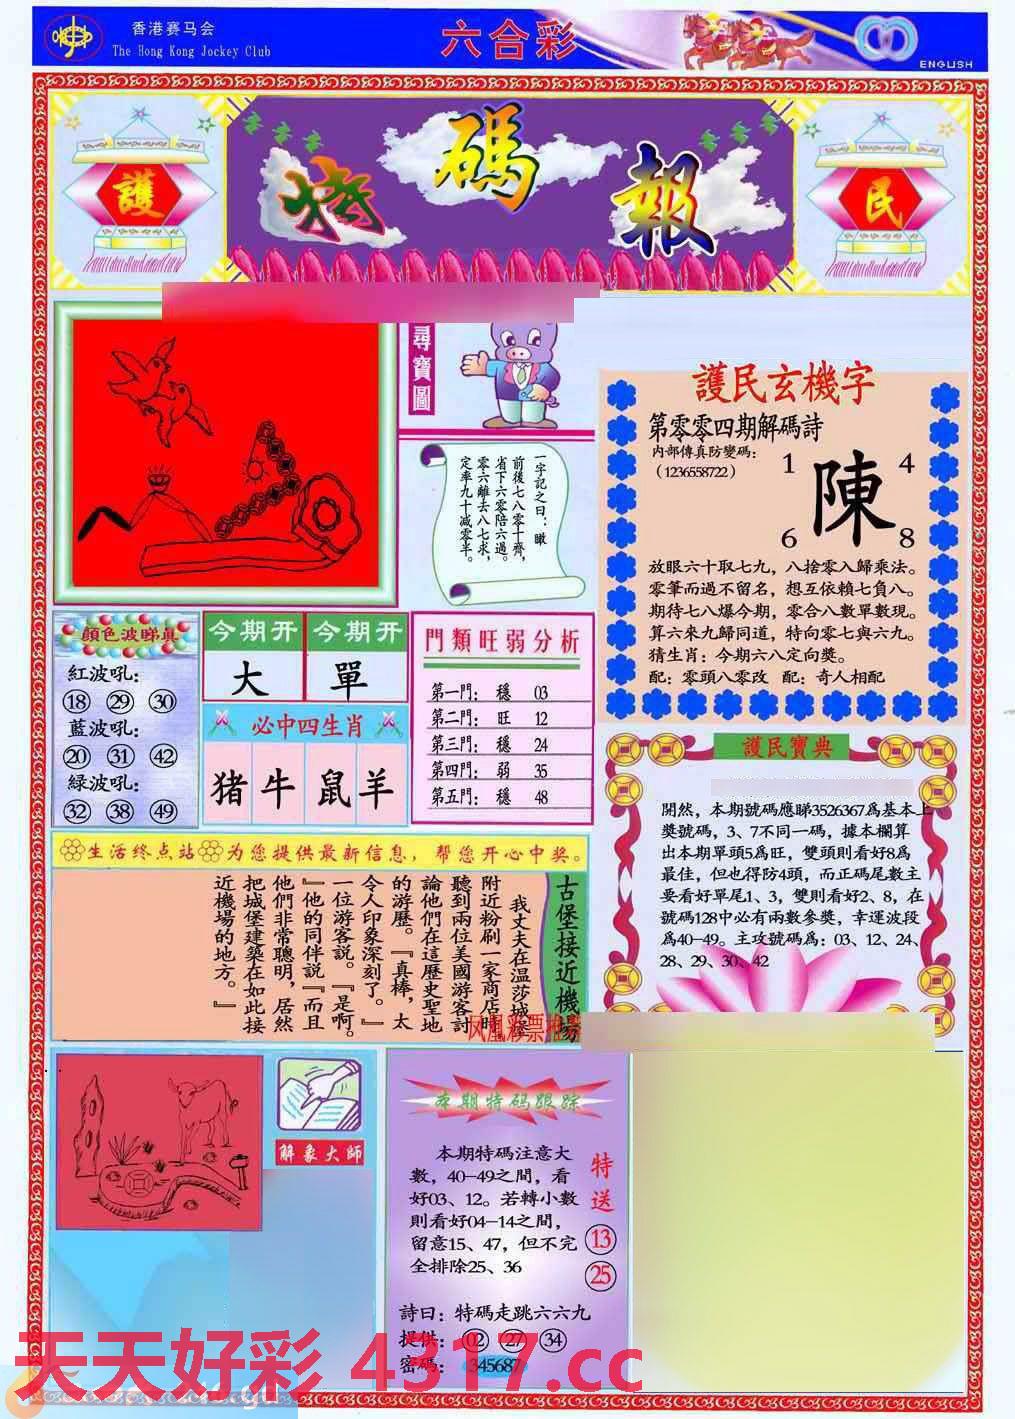 香港赛马会
The Hong Kong Jockey Club
六合彩
ENGLISH
護
特碼報
民
尋寶圖
一字記之曰：瞰
前後七八零十齊，
省下六零陪六過。
零六離去八七求，
定率九十減零半。
護民玄機字
第零零四期解碼詩
内部傳真防變碼：
（1236558722）
1 4
陳
6 8
放眼六十取七九，八捨零入歸乘法。
零筆而過不留名，想互依賴七負八。
期待七八爆今期，零合八數單數現。
算六來九歸同道，特向零七與六九。
猜生肖：今期六八定向獎。
配：零頭八零改 配：奇人相配
顏色波睇真
紅波吼：
18 29 30
藍波吼：
20 31 42
緑波吼：
32 38 49
今期开 今期开
大 單
必中四生肖
猪 牛 鼠 羊
門類旺弱分析
第一門： 穩 03
第二門： 旺 12
第三門： 穩 24
第四門： 弱 35
第五門： 穩 48
護民寶典
開然，本期號碼應睇3526367爲基本上
獎號碼，3、7不同一碼，據本欄算
出本期單頭5爲旺，雙頭則看好8爲
最佳，但也得防4頭，而正碼尾數主
要看好單尾1、3，雙則看好2、8，在
號碼128中必有兩數參獎，幸運波段
爲40—49。主攻號碼爲：03、12、24、
28、29、30、42
生活终点站 为您提供最新信息，帮您开心中奖。
古堡接近機場
我丈夫在温莎城堡
附近粉刷一家商店時
聽到兩位美國游客討
論他們在這歷史聖地
的游歷。『真棒，太
令人印象深刻了。』
一位游客説。『是啊。
』他的同伴説『而且
他們非常聰明，居然
把城堡建築在如此接
近機場的地方。』
凤凰彩票推荐
解象大師
本期特码跟踪
本期特碼注意大
數，40—49之間，看
好03、12。若轉小數
則看好04—14之間，
留意15、47，但不完
全排除25、36
特送
13
25
詩曰：特碼走跳六六九
提供：02 27 34
密碼：345687
天天好彩 4317.cc